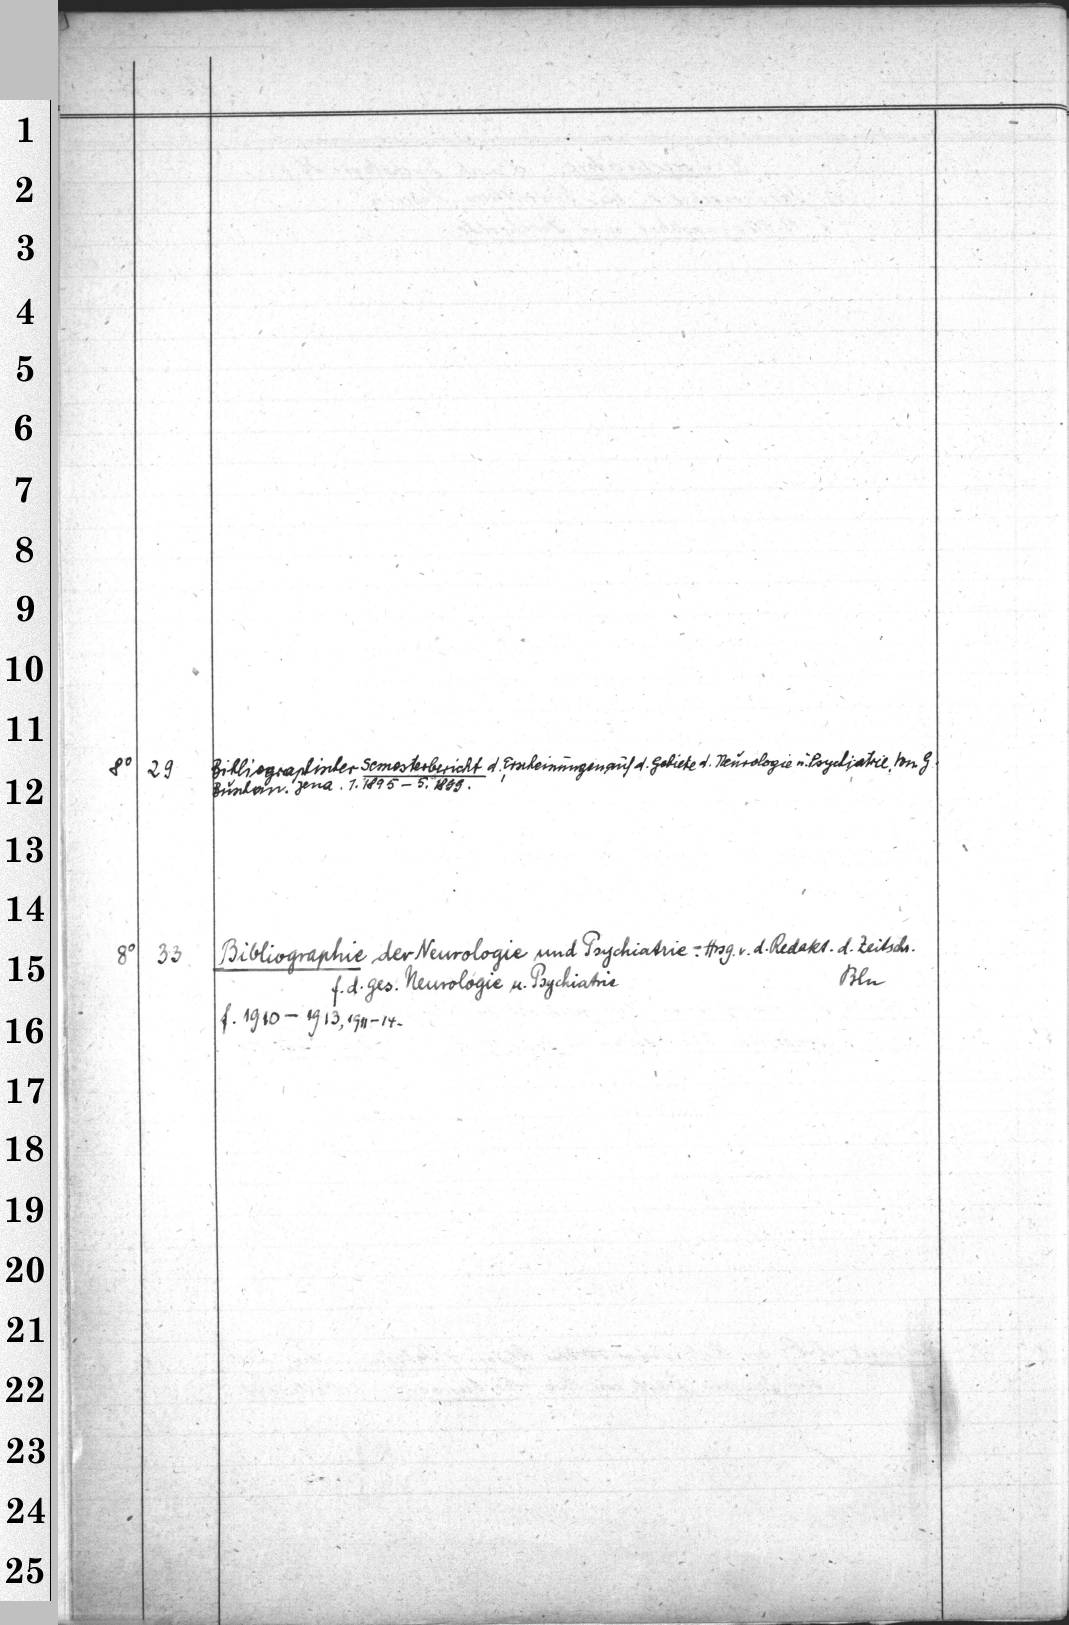 1
2
3
4
5
6
7
8
9
10
11
8° 29 Bibliographischer Semesterbericht d. Erscheinungen auf d. Gebiete d. Neurologie u. Psychiatrie. Von G.
12 Buschan. Jena. 1. 1895 – 5. 1899.
13
14
8° 33 Bibliographie der Neurologie und Psychiatrie = Hrsg. v. d. Redakt. d. Zeitschr.
15 f. d. ges. Neurologie u. Psychiatrie Bln
16 f. 1910 – 1913, 1911–14.
17
18
19
20
21
22
23
24
25